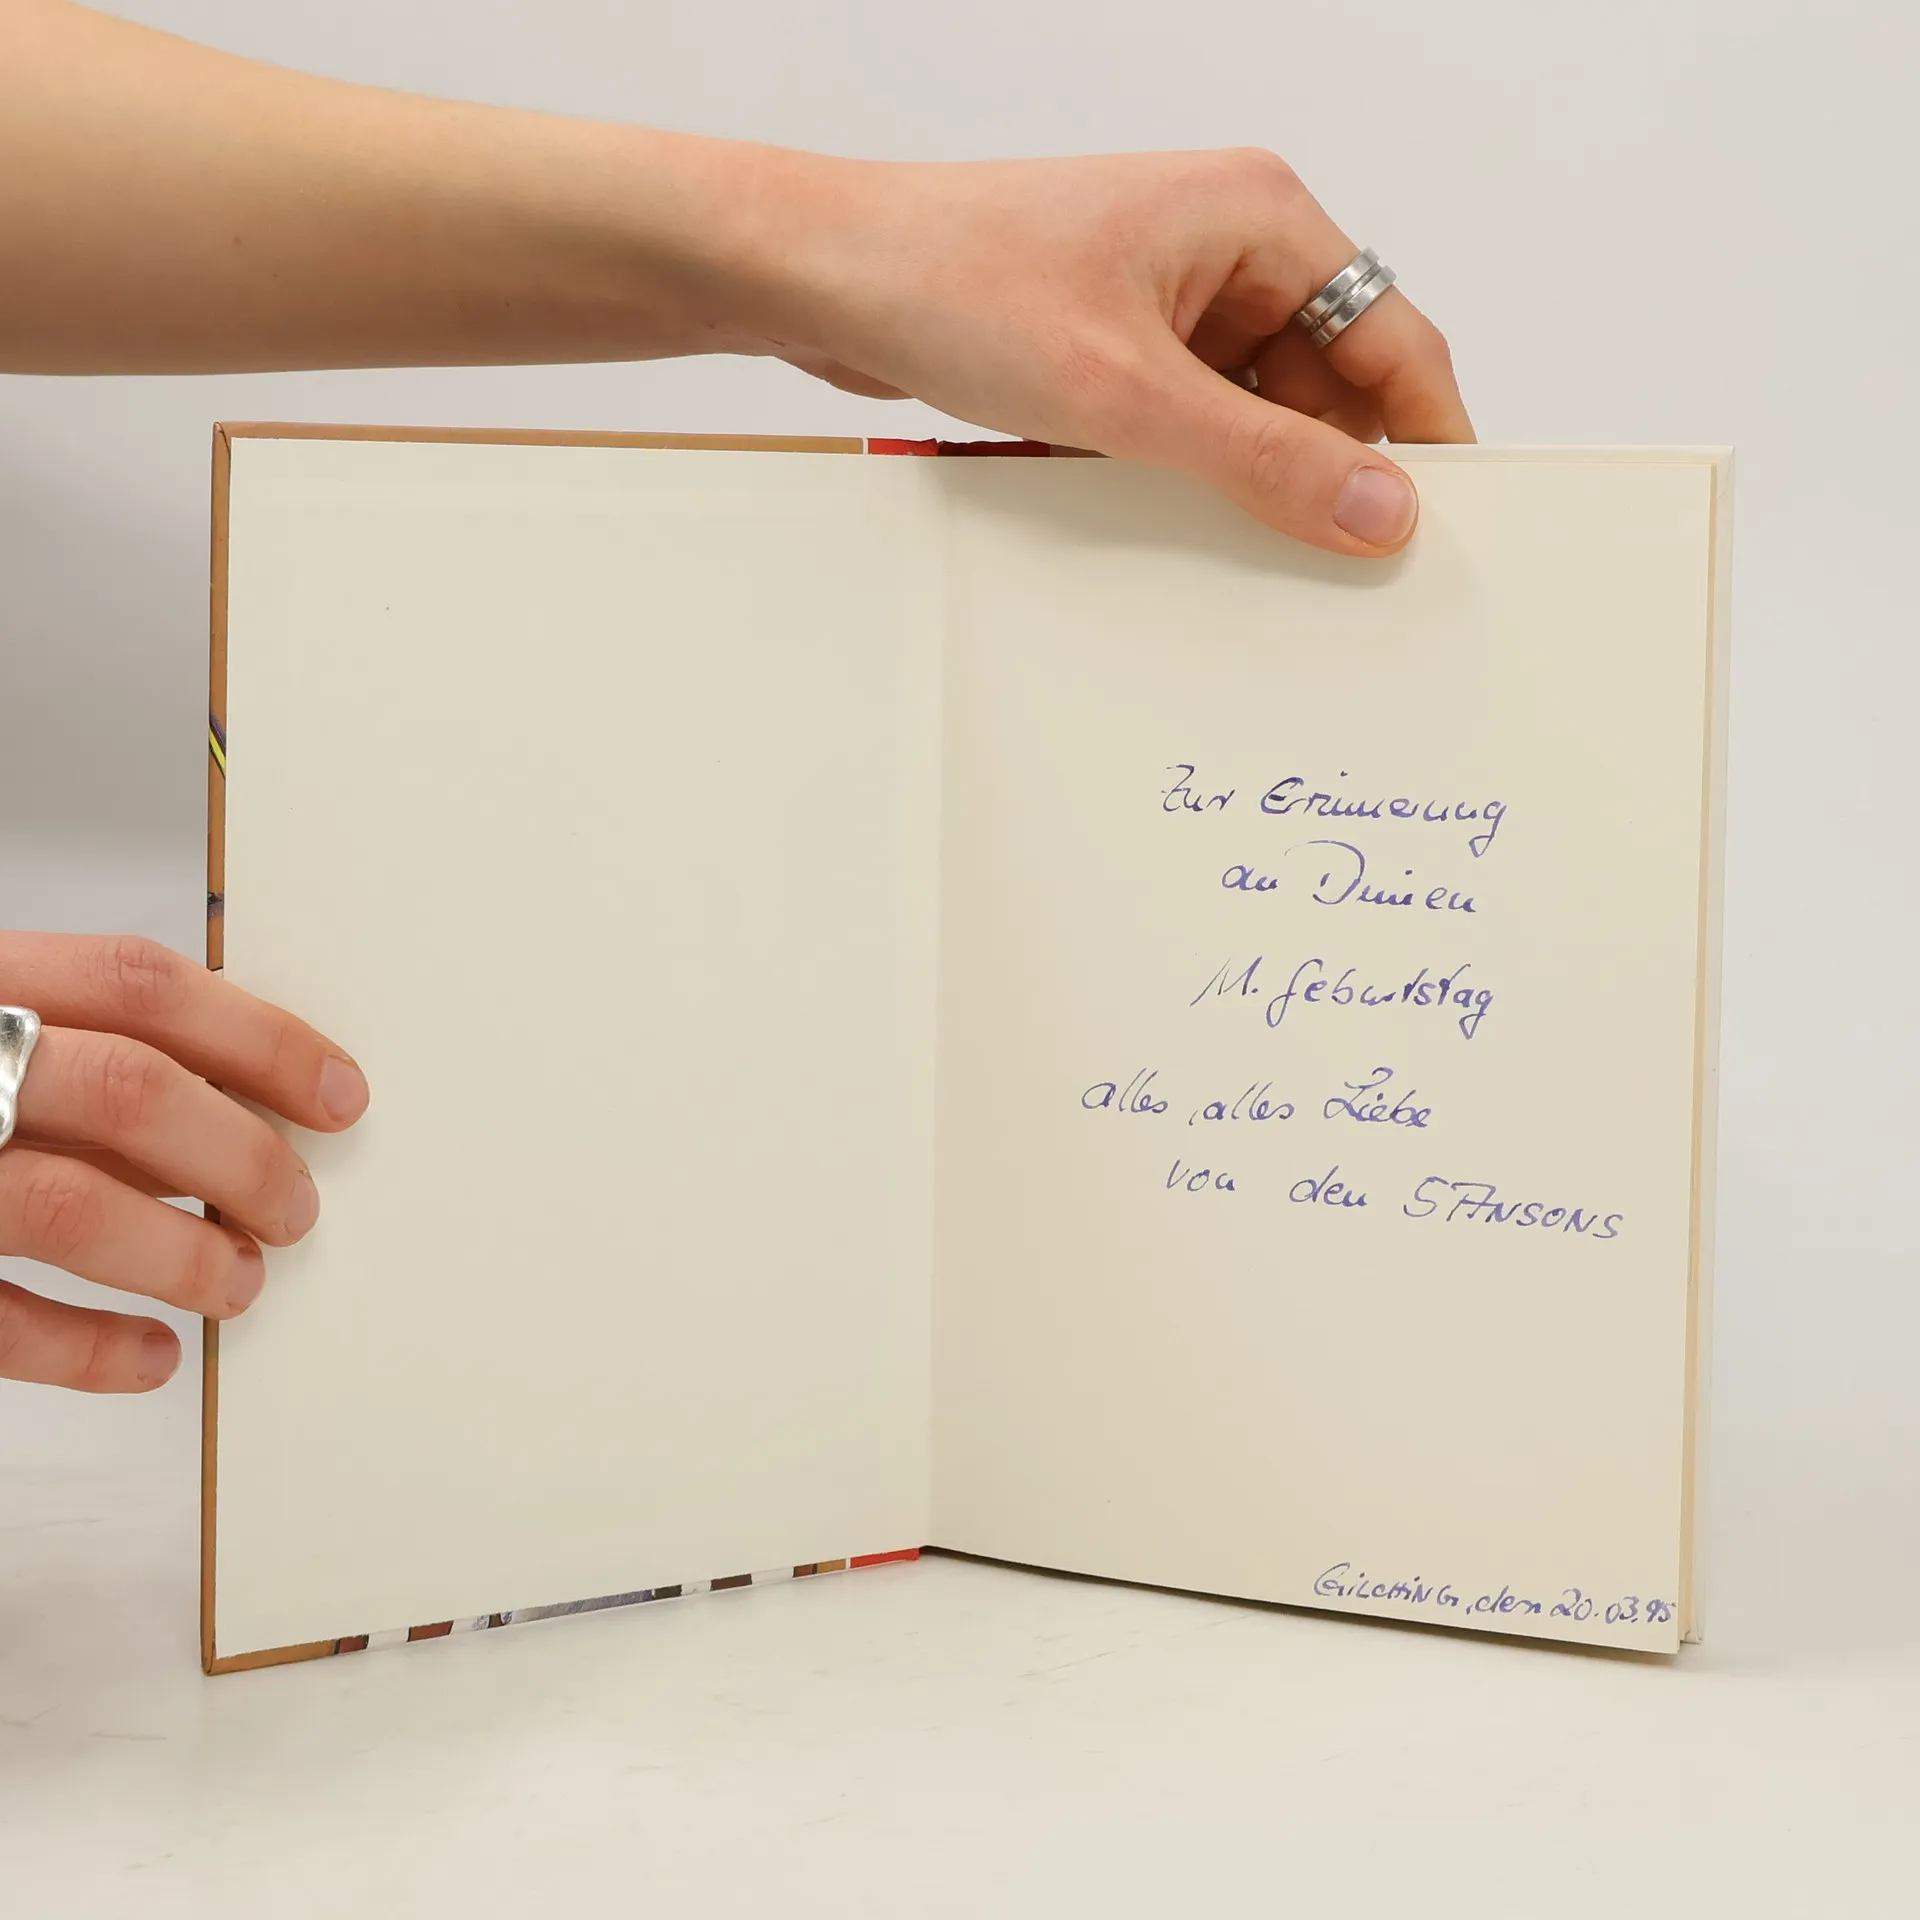 Zur Erinnerung
an Deinen
11. Geburtstag
alles, alles Liebe
von den STANSONS
GILCHING, den 20.03.95